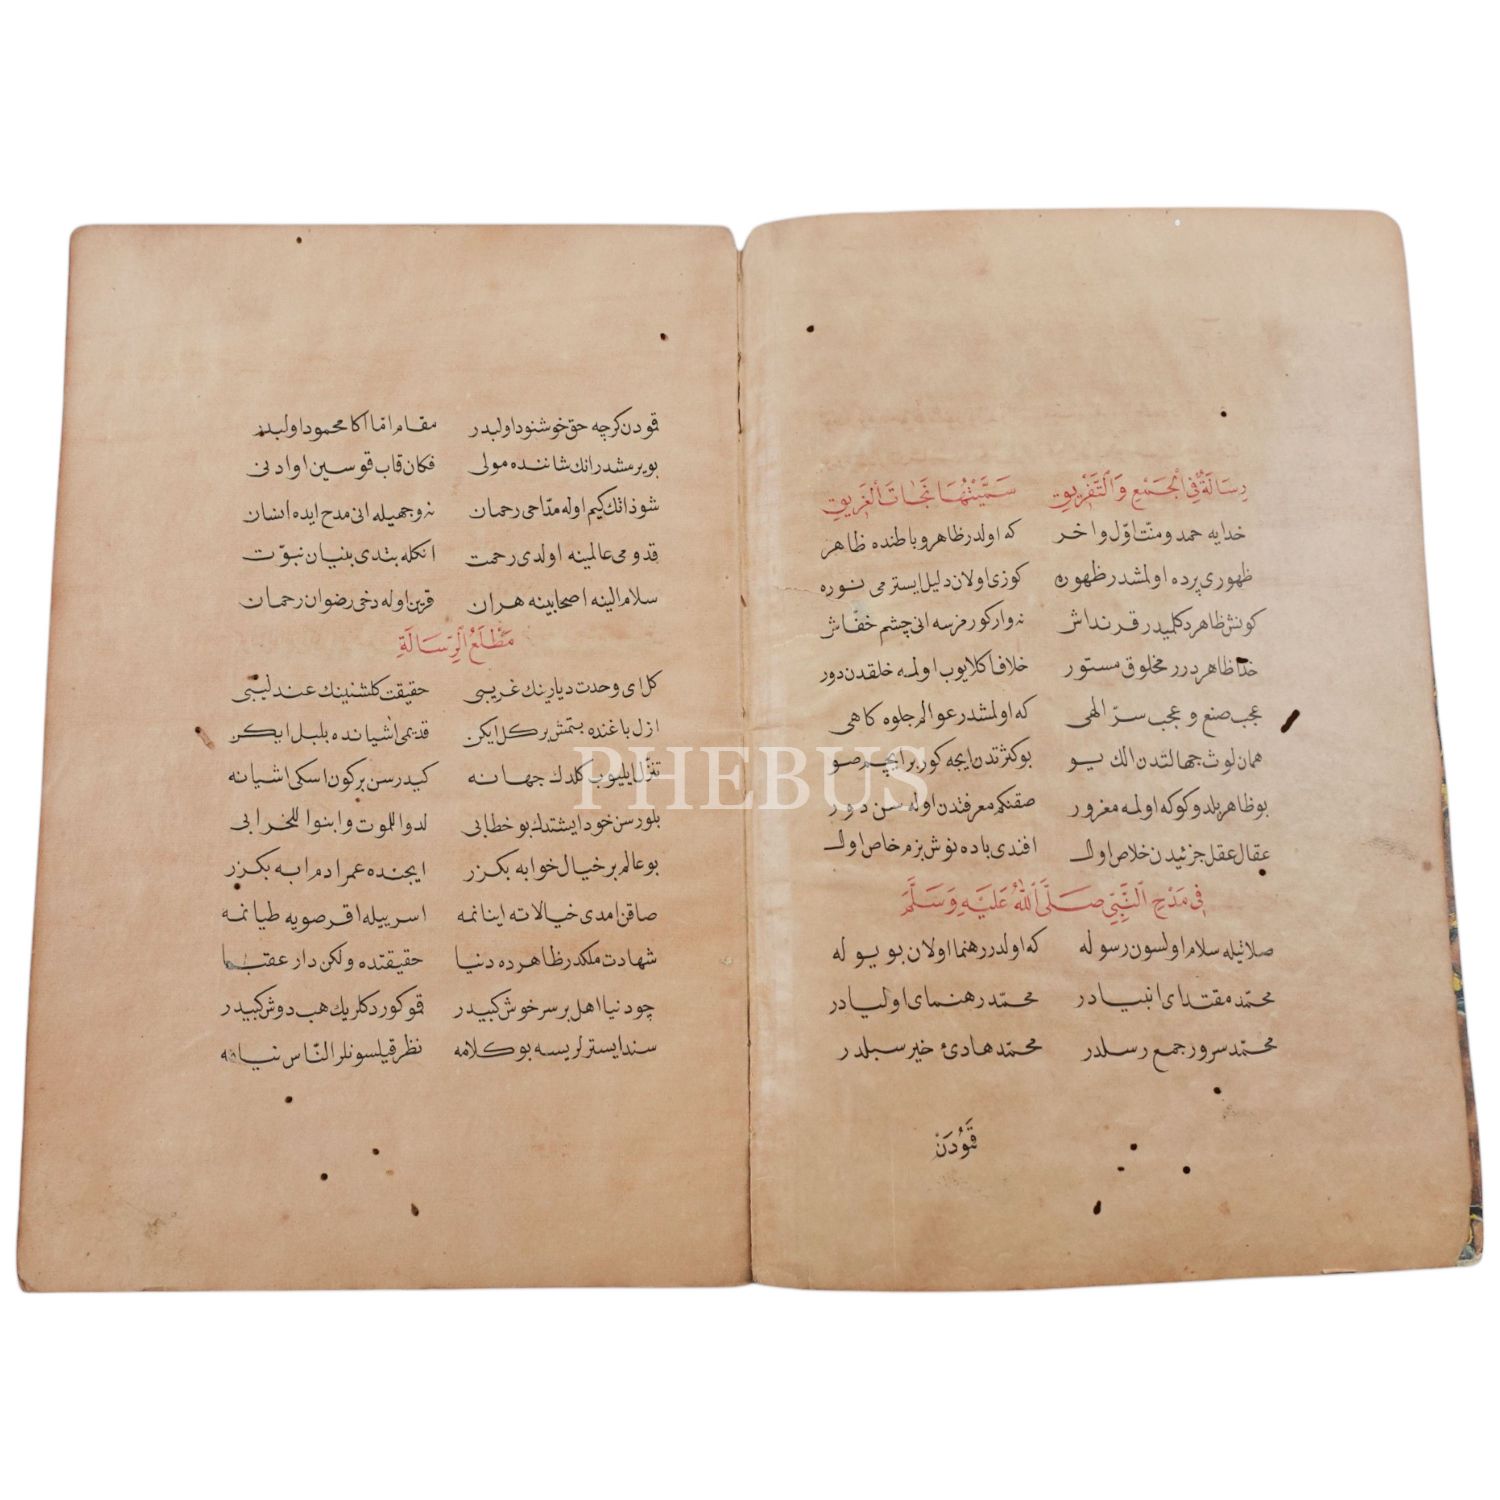 رِسَالَةٌ فِى الْجَمْعِ وَالتَّفْرِيقِ سَمَّيْتُهَا نَجَاتَ الْغَرِيقِ
خدايه حمد و منت اوّل و اخر كه اولدر ظاهر و باطنده ظاهر
ظهورى پرده اولمشدر ظهوره كوزى اولان دليل ايسترمى نوره
كونش ظاهر دكلميدر قرنداش نه وار كورمزسه انى چشم خفّاش
خدا ظاهردرر مخلوق مستور خلافا كلايوب اولمه خلقدن دور
عجب صنع و عجب سرّ الهى كه اولمشدر عوالم جلوه كاهى
همان لوث جهالتدن الك يو بو كثرتدن ايچه كور بر ايچم صو
بو ظاهر بلدوكوكه اولمه مغرور صقنكم معرفتدن اوله سن دور
عقال عقل جزئيدن خلاص اول افندى باده نوش بزم خاص اول
فِى مَدْحِ النَّبِىِّ صَلَّى اللّٰهُ عَلَيْهِ وَسَلَّمَ
صلاتيله سلام اولسون رسوله كه اولدر رهنما اولان بو يوله
محمّد مقتداى انبيادر محمّد رهنماى اوليادر
محمّد سرور جمع رسلدر محمّد هادئ خير سبلدر
قَمُودَنْ
قمودن كرچه حق خوشنود اولبدر مقام امّا اكا محمود اولبدر
بويرمشدر انك شاننده مولى فكان قاب قوسين او ادنى
شو ذاتك كيم اوله مدّاحى رحمان نه وجهيله انى مدح ايده انسان
قدومى عالمينه اولدى رحمت انكله بتدى بنيان نبوّت
سلام الينه اصحابينه هر ان قرين اوله دخى رضوان رحمان
مَطْلَعُ الرِّسَالَةِ
كل اى وحدت ديارينك غريبى حقيقت كلشنينك عندليبى
ازل باغنده بتمش بر كل ايكن قديمى اشيانده بلبل ايكن
تنزّل ايليوب كلدك جهانه كيدرسن بر كون اسكى اشيانه
بلورسن خود ايشتدك بو خطابى لدوا للموت وابنوا للخرابى
بو عالم بر خيال خوابه بكزر ايچنده عمر ادم ابه بكزر
صاقن امدى خيالاته اينانمه اسر ييله اقر صويه طيانمه
شهادت ملكدر ظاهرده دنيا حقيقتده ولكن دار عقبا
چو دنيا اهل بر سرخوش كبيدر قمو كوردكلريك هب دوش كبيدر
سند ايسترلريسه بو كلامه نظر قيلسونلر النّاس نيامه
PHEBUS